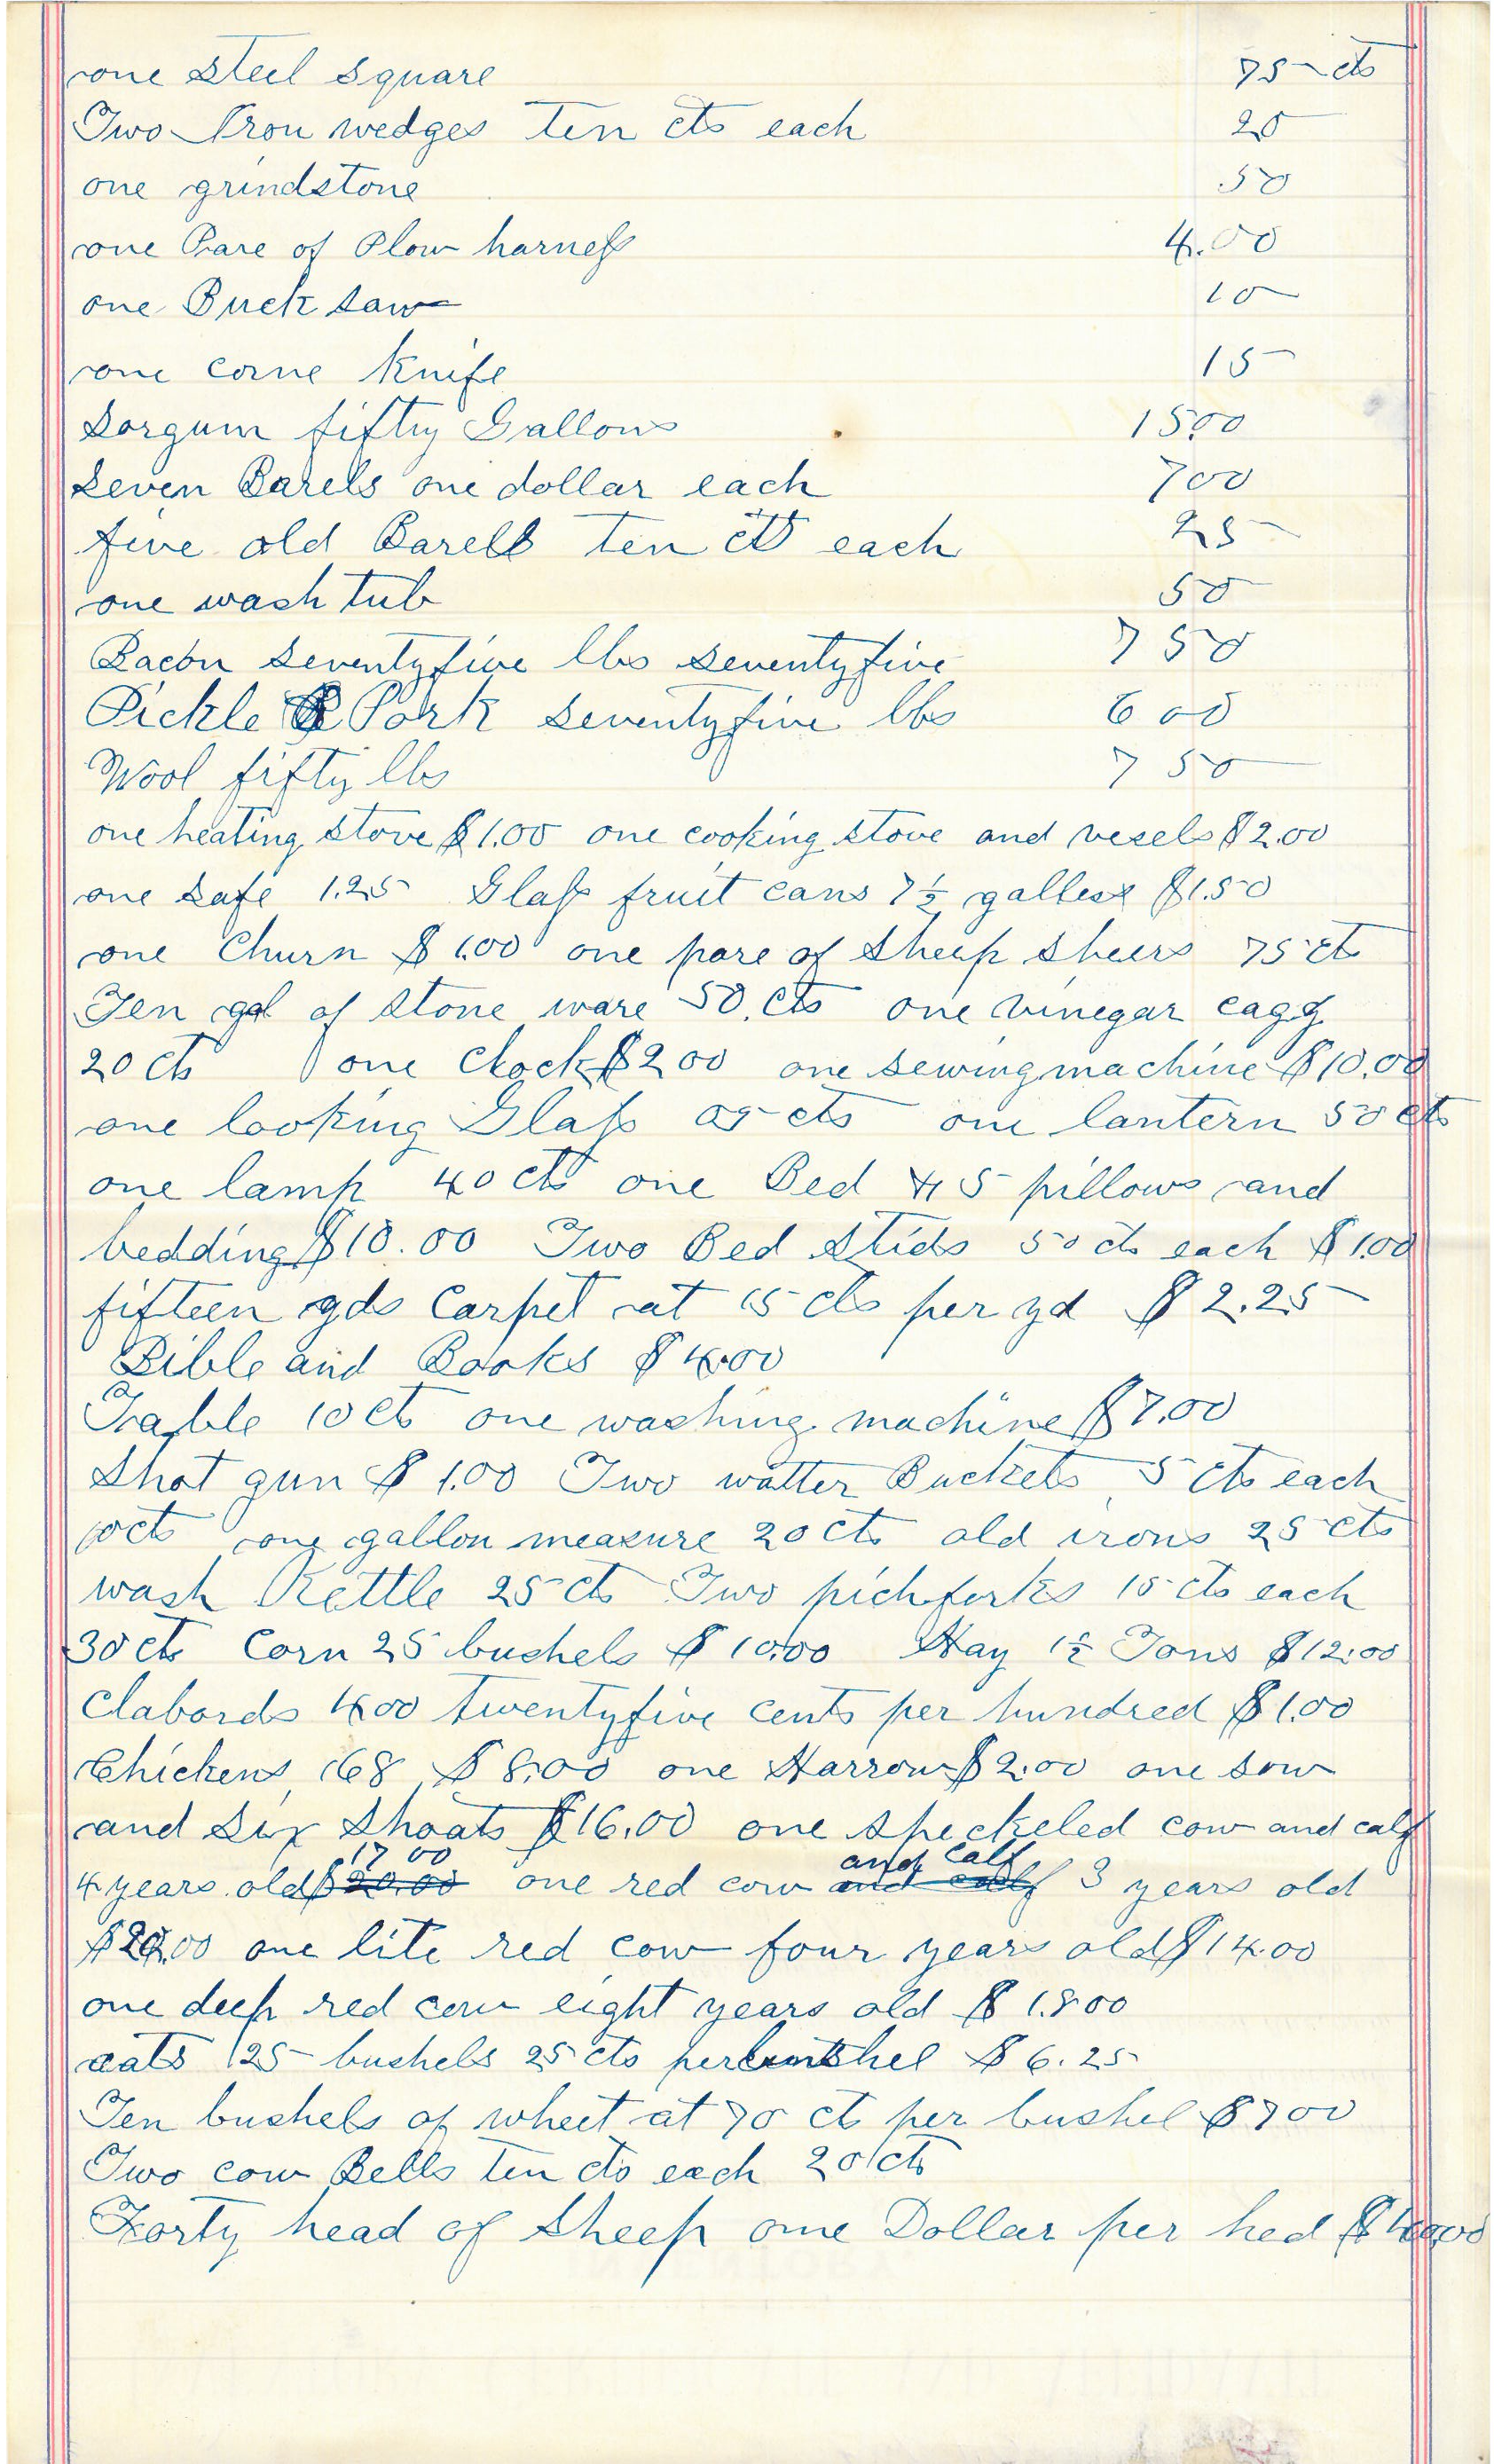 one steel square 75 cts
Two Iron wedges ten cts each 20
one grindstone 50
one Pare of Plow harness 4.00
one Buck saw 10
one corne knife 15
Sorgum fifty Gallons 15.00
Seven Barels one dollar each 7 00
five old Barels ten cts each 25
one wash tub 50
Bacon seventyfive lbs seventyfive 7 50
Pickle Pork seventyfive lbs 6 00
Wool fifty lbs 7 50
one heating stove $1.00 one cooking stove and vesels $2.00
one safe 1.25 Glass fruit cans 7½ $1.50
one Churn $1.00 one pare of Sheep sheers 75 cts
Ten gal of stone ware 50 cts one vinegar cagg
20 cts one Clock $2 00 one sewing machine $10.00
one looking Glass 05 cts one lantern 50 cts
one lamp 40 cts one Bed 5 pillows and
bedding $10.00 Two Bed Stids 50 cts each $1.00
fifteen yds Carpet at 15 cts per yd $2.25
Bible and Books $4.00
Table 10 cts one washing machine $7.00
Shot gun $1.00 Two watter Buckets 5 cts each
10 cts one gallon measure 20 cts old irons 25 cts
wash Kettle 25 cts Two pichforks 15 cts each
30 cts Corn 25 bushels $10.00 Hay 1½ Tons $12.00
Clabords 400 twentyfive cents per hundred $1.00
Chickens 68 $8.00 one Harrow $2.00 one sow
and six shoats $16.00 one speckeled cow and calf
17 00 and Calf
4 years old $20.00 one red cow and calf 3 years old
$20.00 one lite red cow four years old $14.00
one deep red cow eight years old $18.00
oats 25 bushels 25 cts per bushel $6.25
Ten bushels of wheet at 70 ct per bushel $7 00
Two cow Bells ten cts each 20 cts
Forty head of Sheep one Dollar per hed $40.00